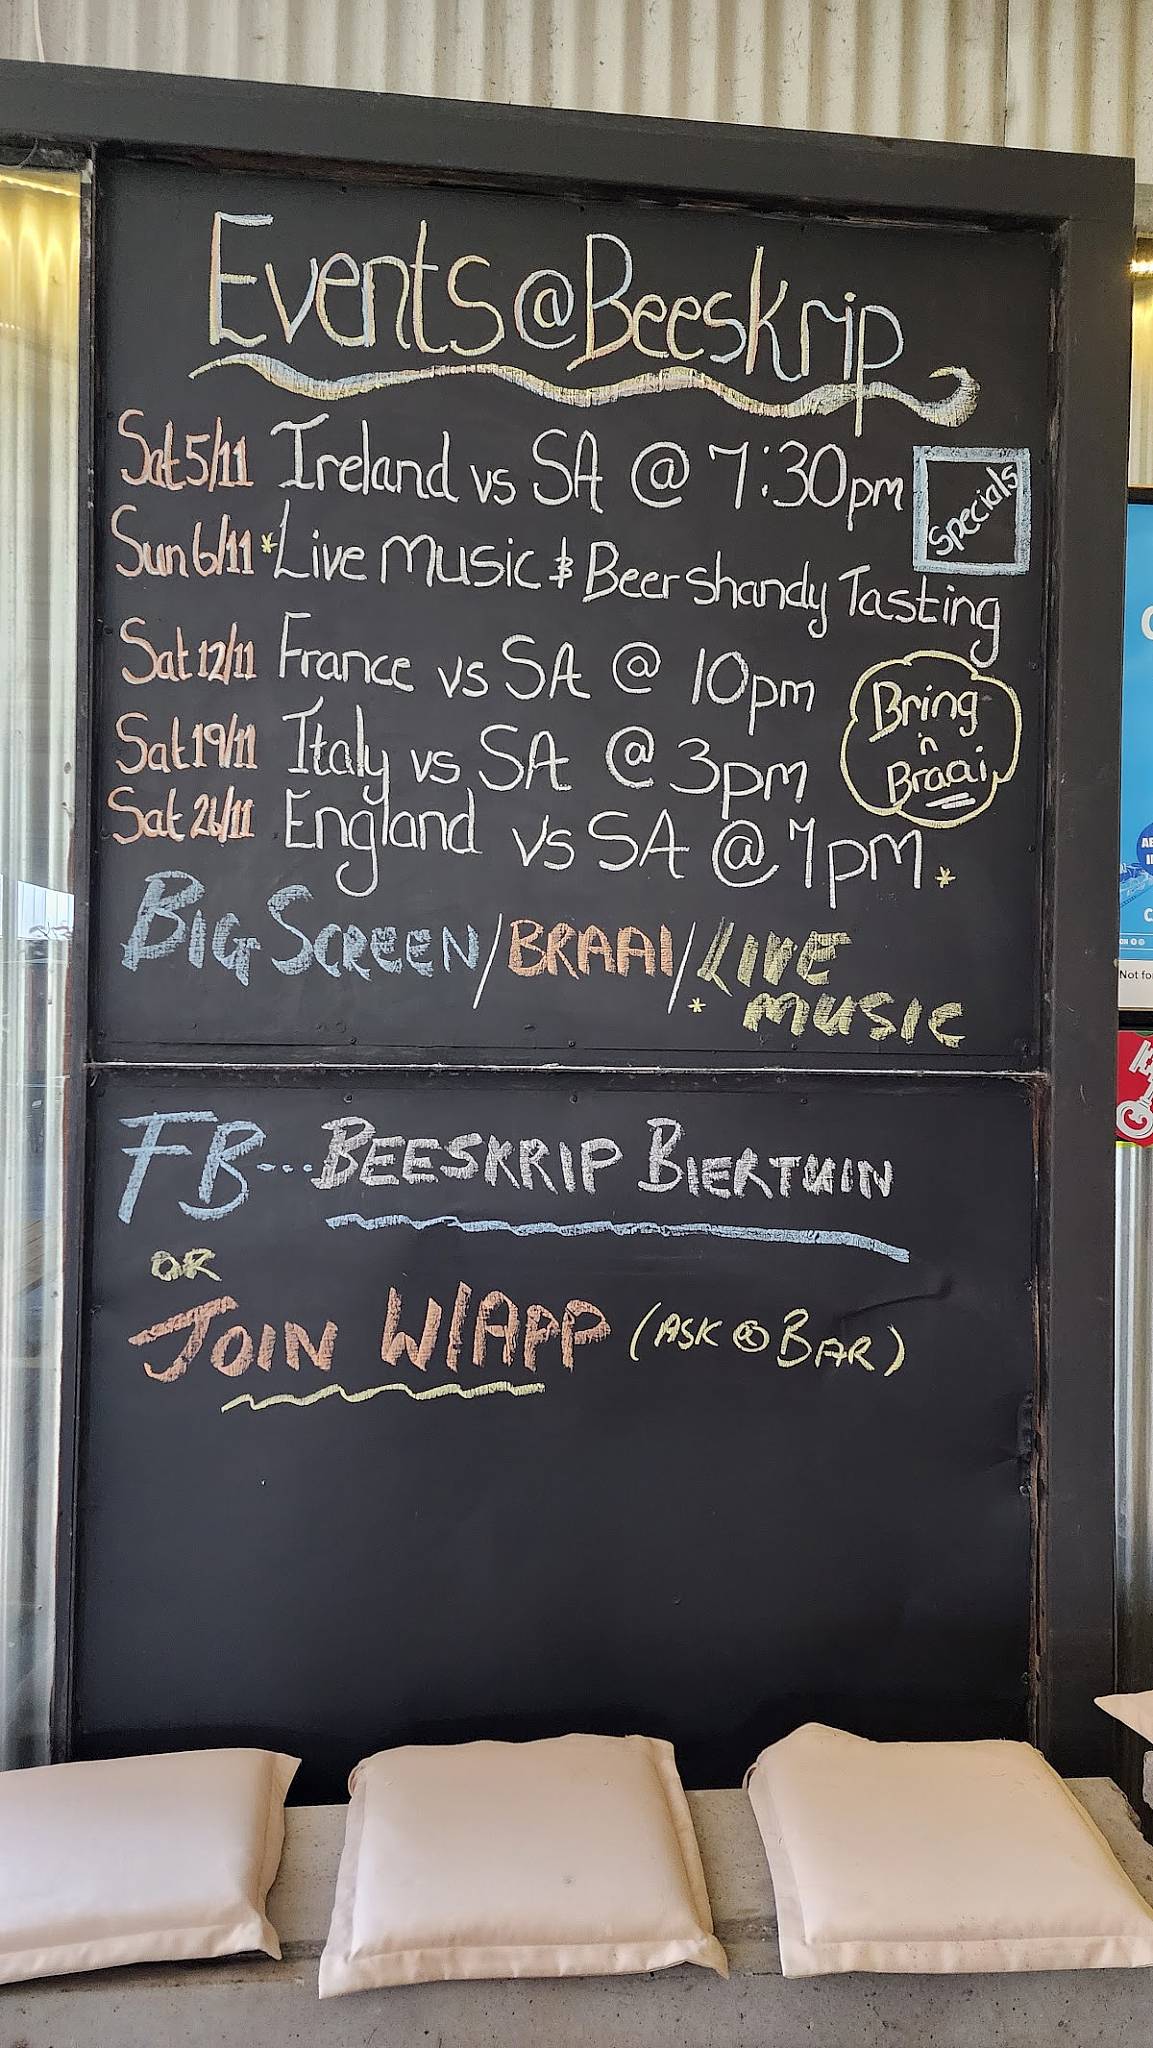 Events@Beeskrip
Sat 5/11 Ireland vs SA @ 7:30pm
Specials
Sun 6/11 *Live Music & Beershandy Tasting
Sat 12/11 France vs SA @ 10pm
Bring
n
Braai
Sat 19/11 Italy vs SA @ 3pm
Sat 26/11 England vs SA @ 7pm *
BIG SCREEN/BRAAI/LIVE
* MUSIC
FB...BEESKRIP BIERTUIN
OR
JOIN W/APP (ASK @ BAR)
Not fo